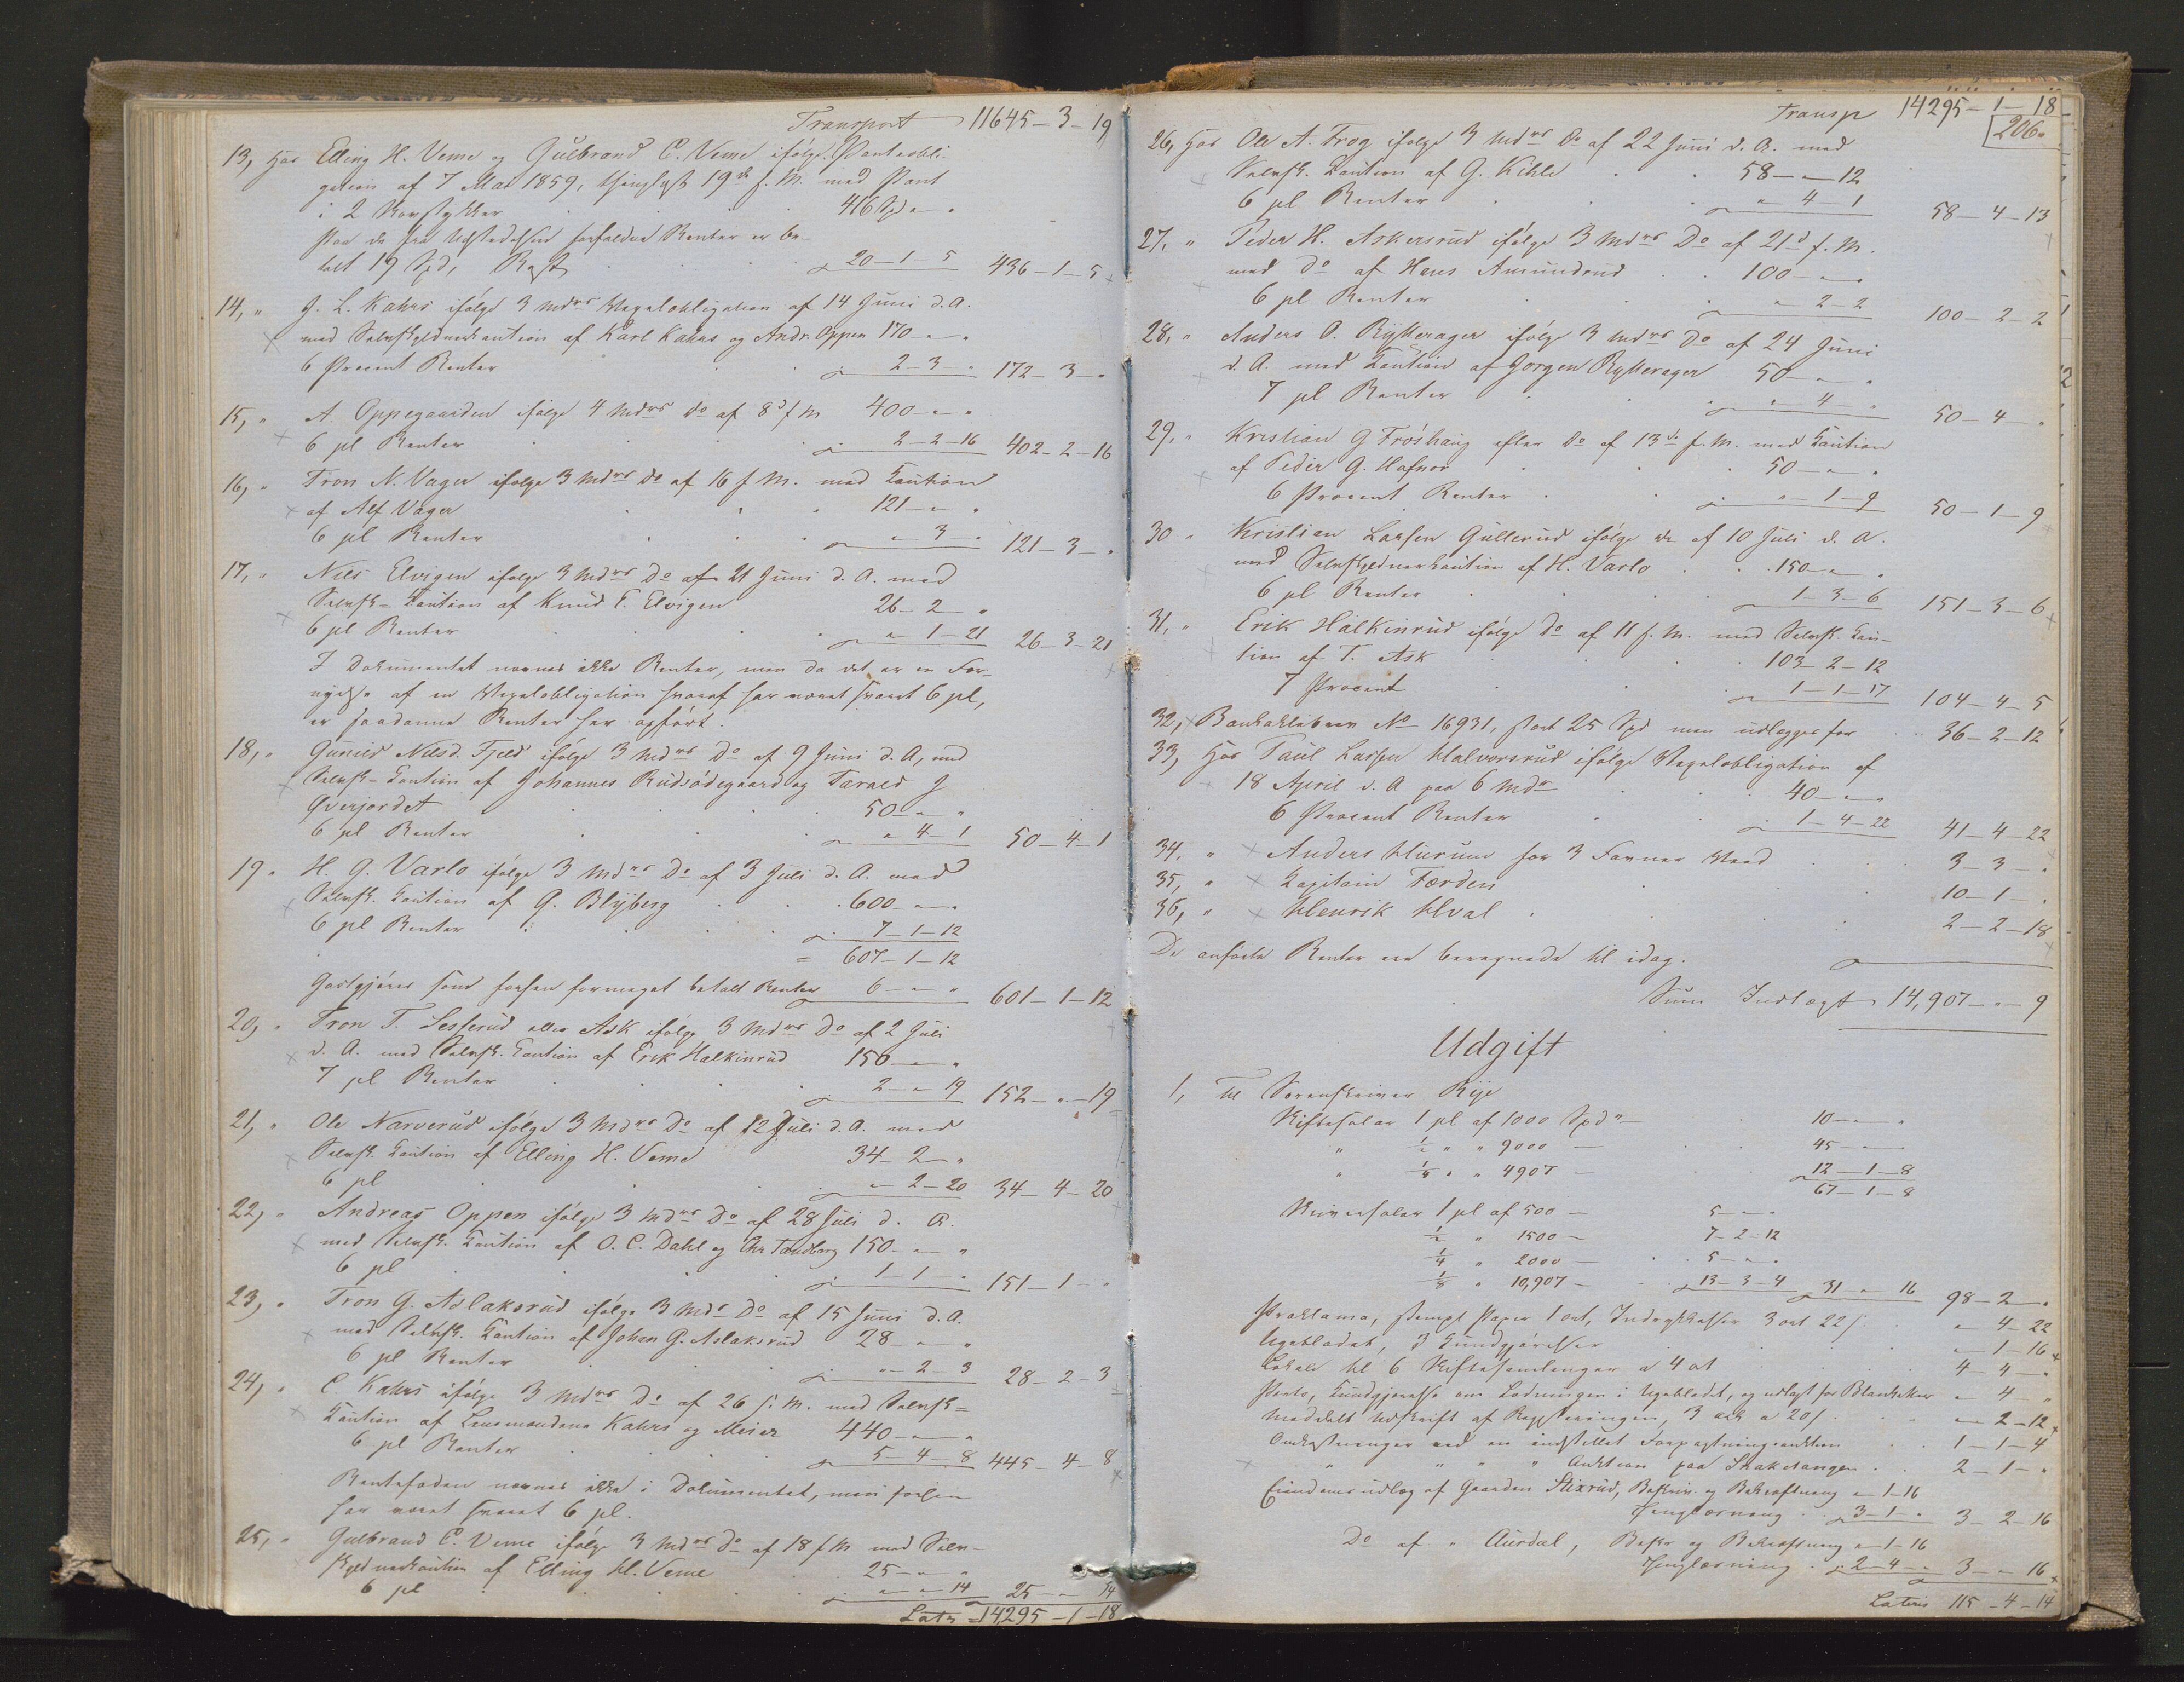 Transport 11645-3-19
13, Hos Elling H. Veme og Gulbrand C. Veme ifølge Panteobli-
gation af 7 Mai 1859, thinglyst 19de f. M. med Pant
i 2 Kornstykker 416 Spd " "
Paa de fra Udstedelsen forfaldne Renter er be-
talt 19 Spd, Rest 20-1-5 436-1-5
14, " G. L. Kahrs ifølge 3 Mdrs Vexelobligation af 14 Juni d. A.
med Selvskyldnerkaution af Karl Kahrs og Andr. Oppen 170 - " - "
6 Procent Renter 2-3-" 172-3-"
15, " A. Oppegaarden ifølge 4 Mdrs Do af 8d f M 400-"-"
6 pCt Renter 2-2-16 402-2-16
16, " Tron N. Vager ifølge 3 Mdrs Do af 16 f M. med Kaution
af Alf Vager 121-"-"
6 pCt Renter "-3-" 121-3-"
17, " Nils Elvigen ifølge 3 Mdrs Do af 21 Juni d. A. med
Selvsk. Kaution af Knud E. Elvigen 26-2-"
6 pCt Renter "-1-21 26-3-21
I Dokumentet nævnes ikke Renter, men da det er en For-
nyelse af en Vexelobligation hvoraf har været svaret 6 pCt,
er saadanne Renter her opført.
18, " Gunild Nilsd. Fjeld ifølge 3 Mdrs Do af 9 Juni d. A, med
Selvsk. Kaution af Johannes Rudsødegaard og Tarald J
Øverjordet 50-"-"
6 pCt Renter "-4-1 50-4-1
19 " H. G. Varlo ifølge 3 Mdrs Do af 3 Juli d. A. med
Selvsk. Kaution af G. Blyberg 600-"-"
6 pCt Renter 7-1-12
= 607-1-12
Godtgjøres som forhen formeget betalt Renter 6-"-" 601-1-12
20, " Tron T. Sesserud eller Ask ifølge 3 Mdrs Do af 2 Juli
d. A. med Selvsk. Kaution af Erik Halkinrud 150-"-"
7 pCt Renter 2-"-19 152-"-19
21, " Ole Narverud ifølge 3 Mdrs Do af 12 Juli d. A. med
Selvsk. Kaution af Elling H. Veme 34-2-"
6 pCt "-2-20 34-4-20
22, " Andreas Oppen ifølge 3 Mdrs Do af 28 Juli d. A.
med Selvsk. Kaution af O. C. Dahl og Chr Tandberg 150-"-"
6 pCt 1-1-" 151-1-"
23, " Tron G. Aslaksrud ifølge 3 Mdrs Do af 15 Juni d. A.
med Selvsk. Kaution af Johan G. Aslaksrud 28-"-"
6 pCt Renter "-2-3 28-2-3
24, " C. Kahrs ifølge 3 Mdrs Do af 26 f. M. med Selvsk-
Kaution af Lensmændene Kahrs og Meier 440-"-"
6 pCt Renter 5-4-8 445-4-8
Rentefoden nævnes ikke i Dokumentet, men forhen
har været svaret 6 pCt.
25, " Gulbrand C. Veme ifølge 3 Mdrs Do af 18 f M med Selv-
skyldnerkaution af Elling H. Veme 25-"-"
6 pCt "-"-14 25-"-14
Lats 14,295-1-18
Transp 14295-1-18
206.
26, Hos Ole A. Frog ifølge 3 Mdrs Do af 22 Juni d. A. med
Selvsk. Kaution af G. Kihle 58-"-12
6 pCt Renter "-4-1 58-4-13
27, " Peder H. Askersrud ifølge 3 Mdrs Do af 21d f. M.
med Do af Hans Amundrud 100-"-"
6 pCt Renter "-2-2 100-2-2
28, " Anders O. Rytterager ifølge 3 Mdrs Do af 24 Juni
d. A. med Kaution af Jørgen Rytterager 50-"-"
7 pCt Renter "-4-" 50-4-"
29, " Kristian G Frøshaug efter Do af 13de f. M. med Kaution
af Peder G. Hafnor 50-"-"
6 Procent Renter "-1-9 50-1-9
30 " Kristian Larsen Gullerud ifølge Do af 10 Juli d. A.
med Selvskyldnerkaution af H. Varlo 150-"-"
6 pCt Renter 1-3-6 151-3-6
31, " Erik Halkinrud ifølge Do af 11 f. M. med Selvsk. Kau-
tion af T. Ask 103-2-12
7 Procent 1-1-17 104-4-5
32, Bankaktie No 16931, stor 25 Spd men udlægges for 36-2-12
33, Hos Paul Larsen Halvorsrud ifølge Vexelobligation af
18 April d. A paa 6 Mdr 40-"-"
6 Procent Renter 1-4-22 41-4-22
34, " Anders Hurum for 3 Favner Veed 3-3-"
35, " Kapitain Færden 10-1-"
36, " Henrik Hval 2-2-18
De anførte Renter ere beregnede til idag.
Sum Indtægt 14,907-"-9
Udgift
1, Til Sorenskriver Rye
Skiftesalær 1 pCt af 1000 Spdr 10-"-"
" ½ " " 9000 - 45-"-"
" ¼ " " 4907 - 12-1-8
67-1-8
Skriversalær 1 pCt af 500 - 5-"-"
½ " 1500 - 7-2-12
¼ " 2000 - 5-"-"
⅛ " 10,907 - 13-3-4 31-"-16 98-2-"
Proklama, stempl Papir 1 ort, Indrykkelse 3 ort 22 s. "-4-22
Ugebladet, 3 Kundgjørelser "-1-16
Lokale til 6 Skiftesamlinger a 4 ort 4-4-"
Porto, Kundgjørelse om Lodningen i Ugebladet, og udlagt for Blanketter "-4-"
Meddelt Udskrift af Registreringen, 3 ark a 20 s. "-2-12
Omkostninger ved en indstillet Forpagtningsauktion 1-1-4
" " " " Auktion paa Staketangen 2-1-"
Eiendomsudlæg af Gaarden Stixrud, Beskriv. og Bekræftning "-1-16
Thinglæsning 3-1-" 3-2-16
Do af " Aurdal, Beskr og Bekræftning "-1-16
Thinglæsning 2-4-" 3-"-16
Lateris 115-4-14